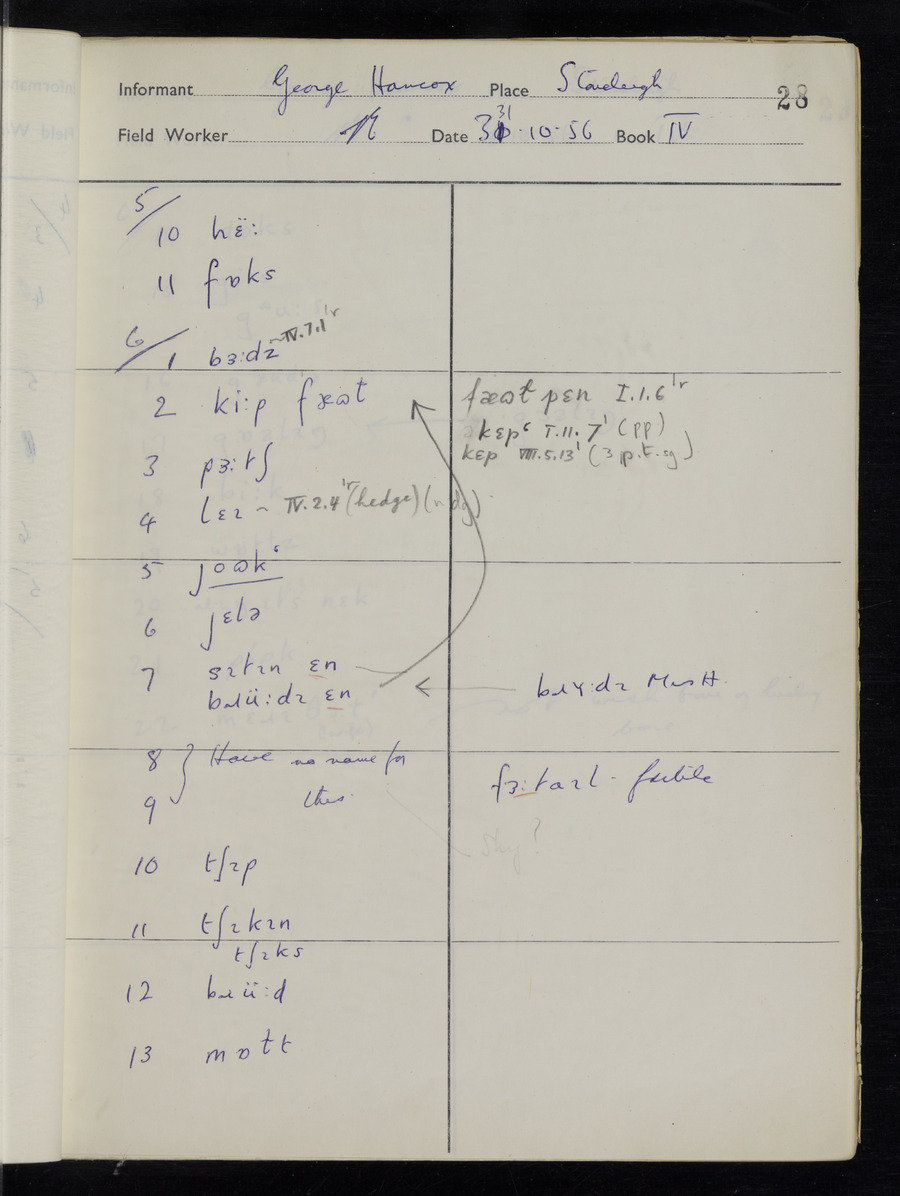 Informant George Hancox Place Stoneleigh 28
Field Worker Date 31 30·10·56 Book IV
5/
10 hɛ̈:
11 fɒks
6/
1 bɜ:dz ~ IV.7.1'r
2 ki:p fæɷɫ
fæɷɫ pɛn I.1.6'r
ə kɛpʿ I.11.7' (pp)
kɛp VIII.5.13' (3 p.t.sg)
3 pɜ:tʃ
4 lɛɪ ~ IV.2.4'r (hedge)
5 joɷkʿ
6 jɛlə
7 sɪtɪn ɛn
bɹü:dɪ ɛn
bɹʏ:dɪ
8 } Have no name for
9 this.
fɜ:taɪl - fertile
10 tʃɪp
11 tʃɪkɪn
tʃɪks
12 bɹü:d
13 mɒɫt